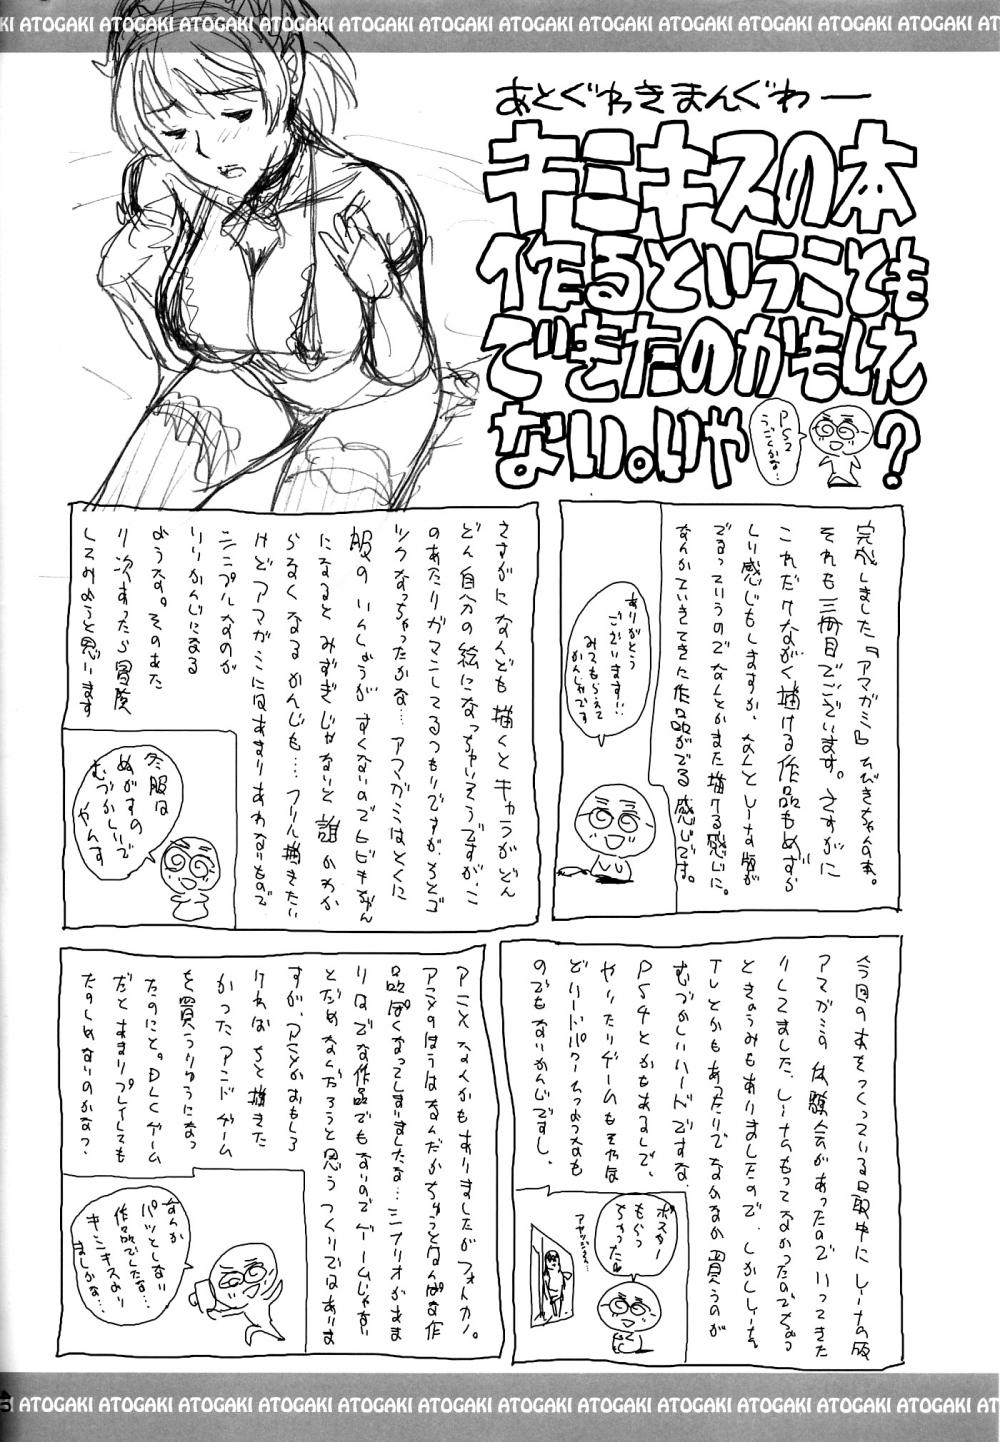 ATOGAKI ATOGAKI ATOGAKI ATOGAKI ATOGAKI ATOGAKI ATOGAKI ATOGAKI ATOGAKI ATOGAKI
あとぐわきまんぐわー
キミキスの本
作るということも
できたのかもしれ
ない。いや
PS2
うごくかな…
?
完成しました「アマガミ」ひびきちゃん本。
それも三冊目でございます。さすがに
これだけながく描ける作品もめずら
しい感じもしますが、なんとしーなの版が
でるっていうのでなんとかまた描ける感じに。
なんかていきてきに作品がでる感じです。
ありがとう
ございます!!
みてもらえて
かんしゃです
さすがになんども描くとキャラがどん
どん自分の絵になっちゃいそうですが、こ
のあたりガマンしてるつもりですが、ちとご
ツクなっちゃったかな…アマガミはとくに
服のいしょうがすくないのでヒビキちゃん
になるとみずぎじゃないと誰かわか
らなくなるかんじも…フリル描きたい
けどアマガミにはあまりあわないもので
シンプルなのが
いいかんじになる
ような。そのあた
り次あったら冒険
してみようと思います
冬服は
ぬがすの
むづかしいで
やんす
今回の本をつくっている最中にしーなの版
アマガミの体験会があったのでいってきた
りしてました、しーなもってなかったのでちょっ
ときょうみもありましたので、しかししーな
TVとかもあったりでなかなか買うのが
むづかしいハードですな
PS4とかもあるしで、
やりたいゲームもそれほ
どハードパワーつかうものも
のでもないかんじですし、
ポスター
もらっ
ちゃった
アニメなんかもありましたがフォトカノ。
アメのほうはなんだかちょっとなんぱな作
品ぽくなってしまいましたな…シナリオがあま
りはでな作品でもないのでゲームじゃない
とだめなんだろうと思うつくりではありま
すが、アニメがおもしろ
ければちと描きた
かったアンドゲーム
を買うりゆうになっ
たのにと。DLCゲーム
だとあまりプレイしても
たのしめないのかな?
なんか
パッとしない
作品でしたな…
キミキスより
ましかな…
ATOGAKI ATOGAKI ATOGAKI ATOGAKI ATOGAKI ATOGAKI ATOGAKI ATOGAKI ATOGAKI ATOGAKI